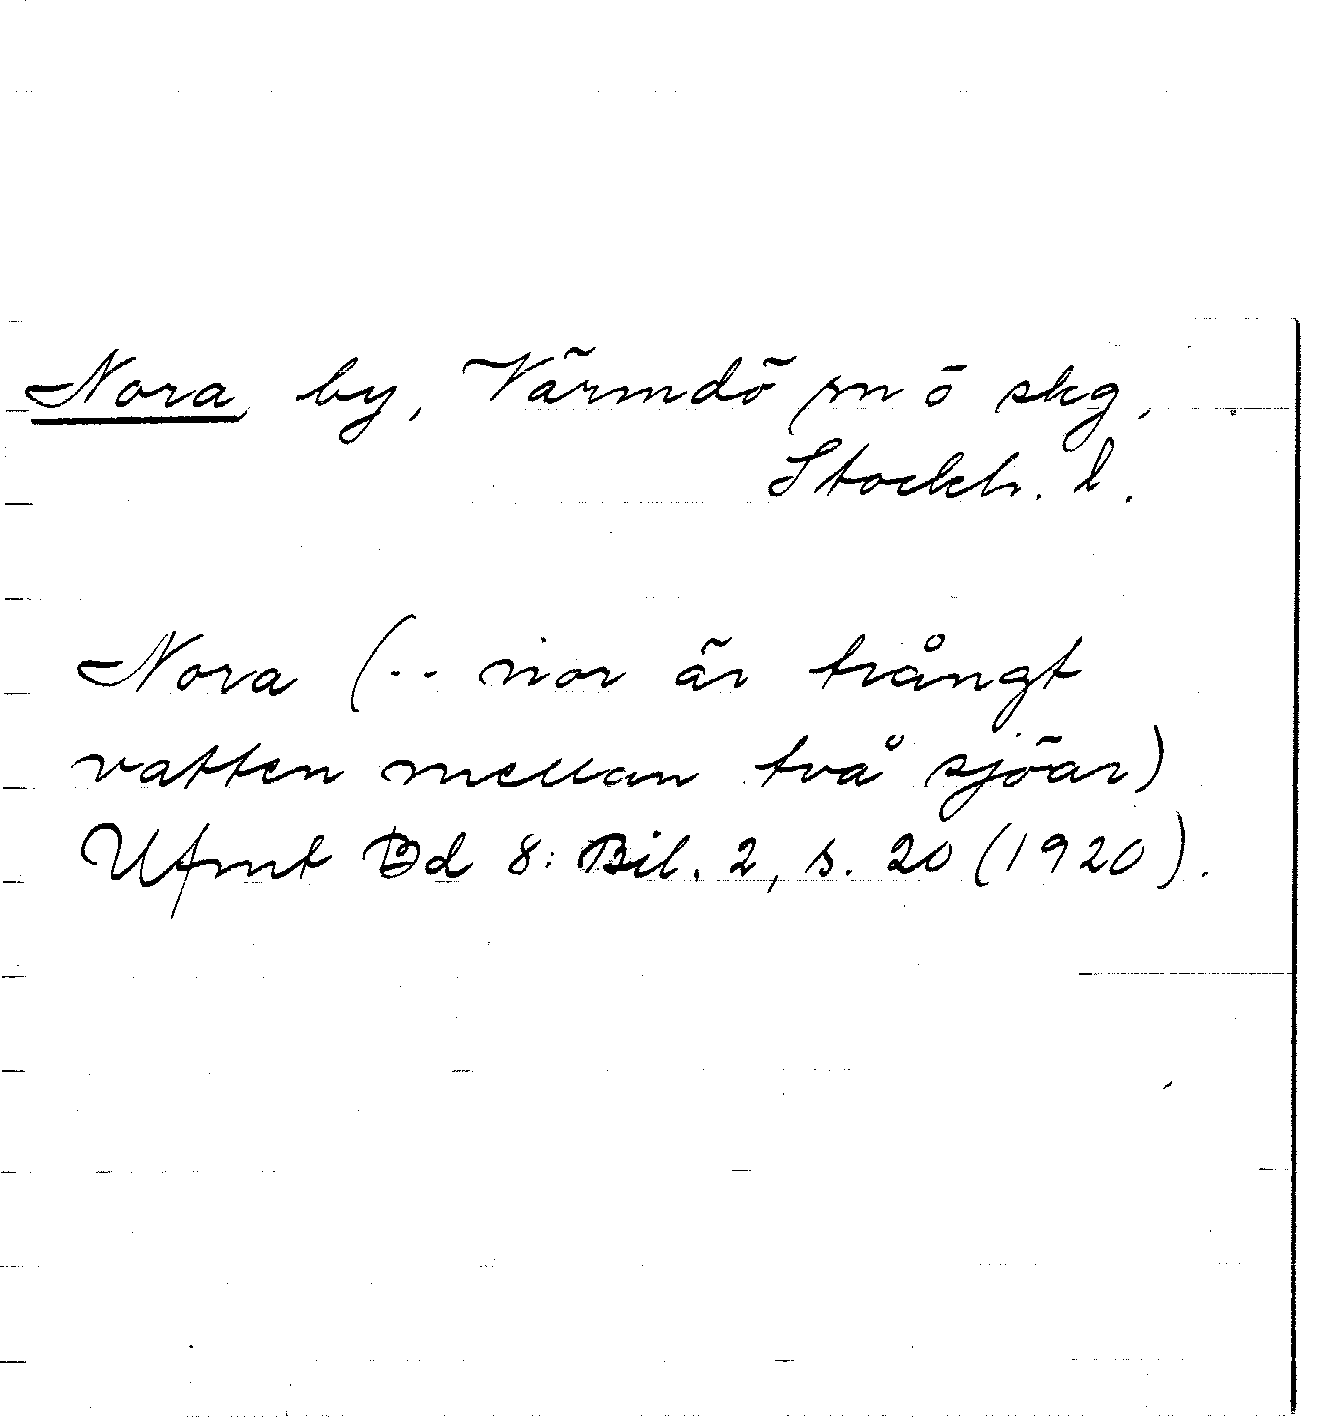 Nora by, Värmdö sn ö skg,
Stockh. l.
Nora (.. nor är trångt
vatten mellan två sjöar)
Ufmt Bd 8: Bil. 2, s. 20 (1920).